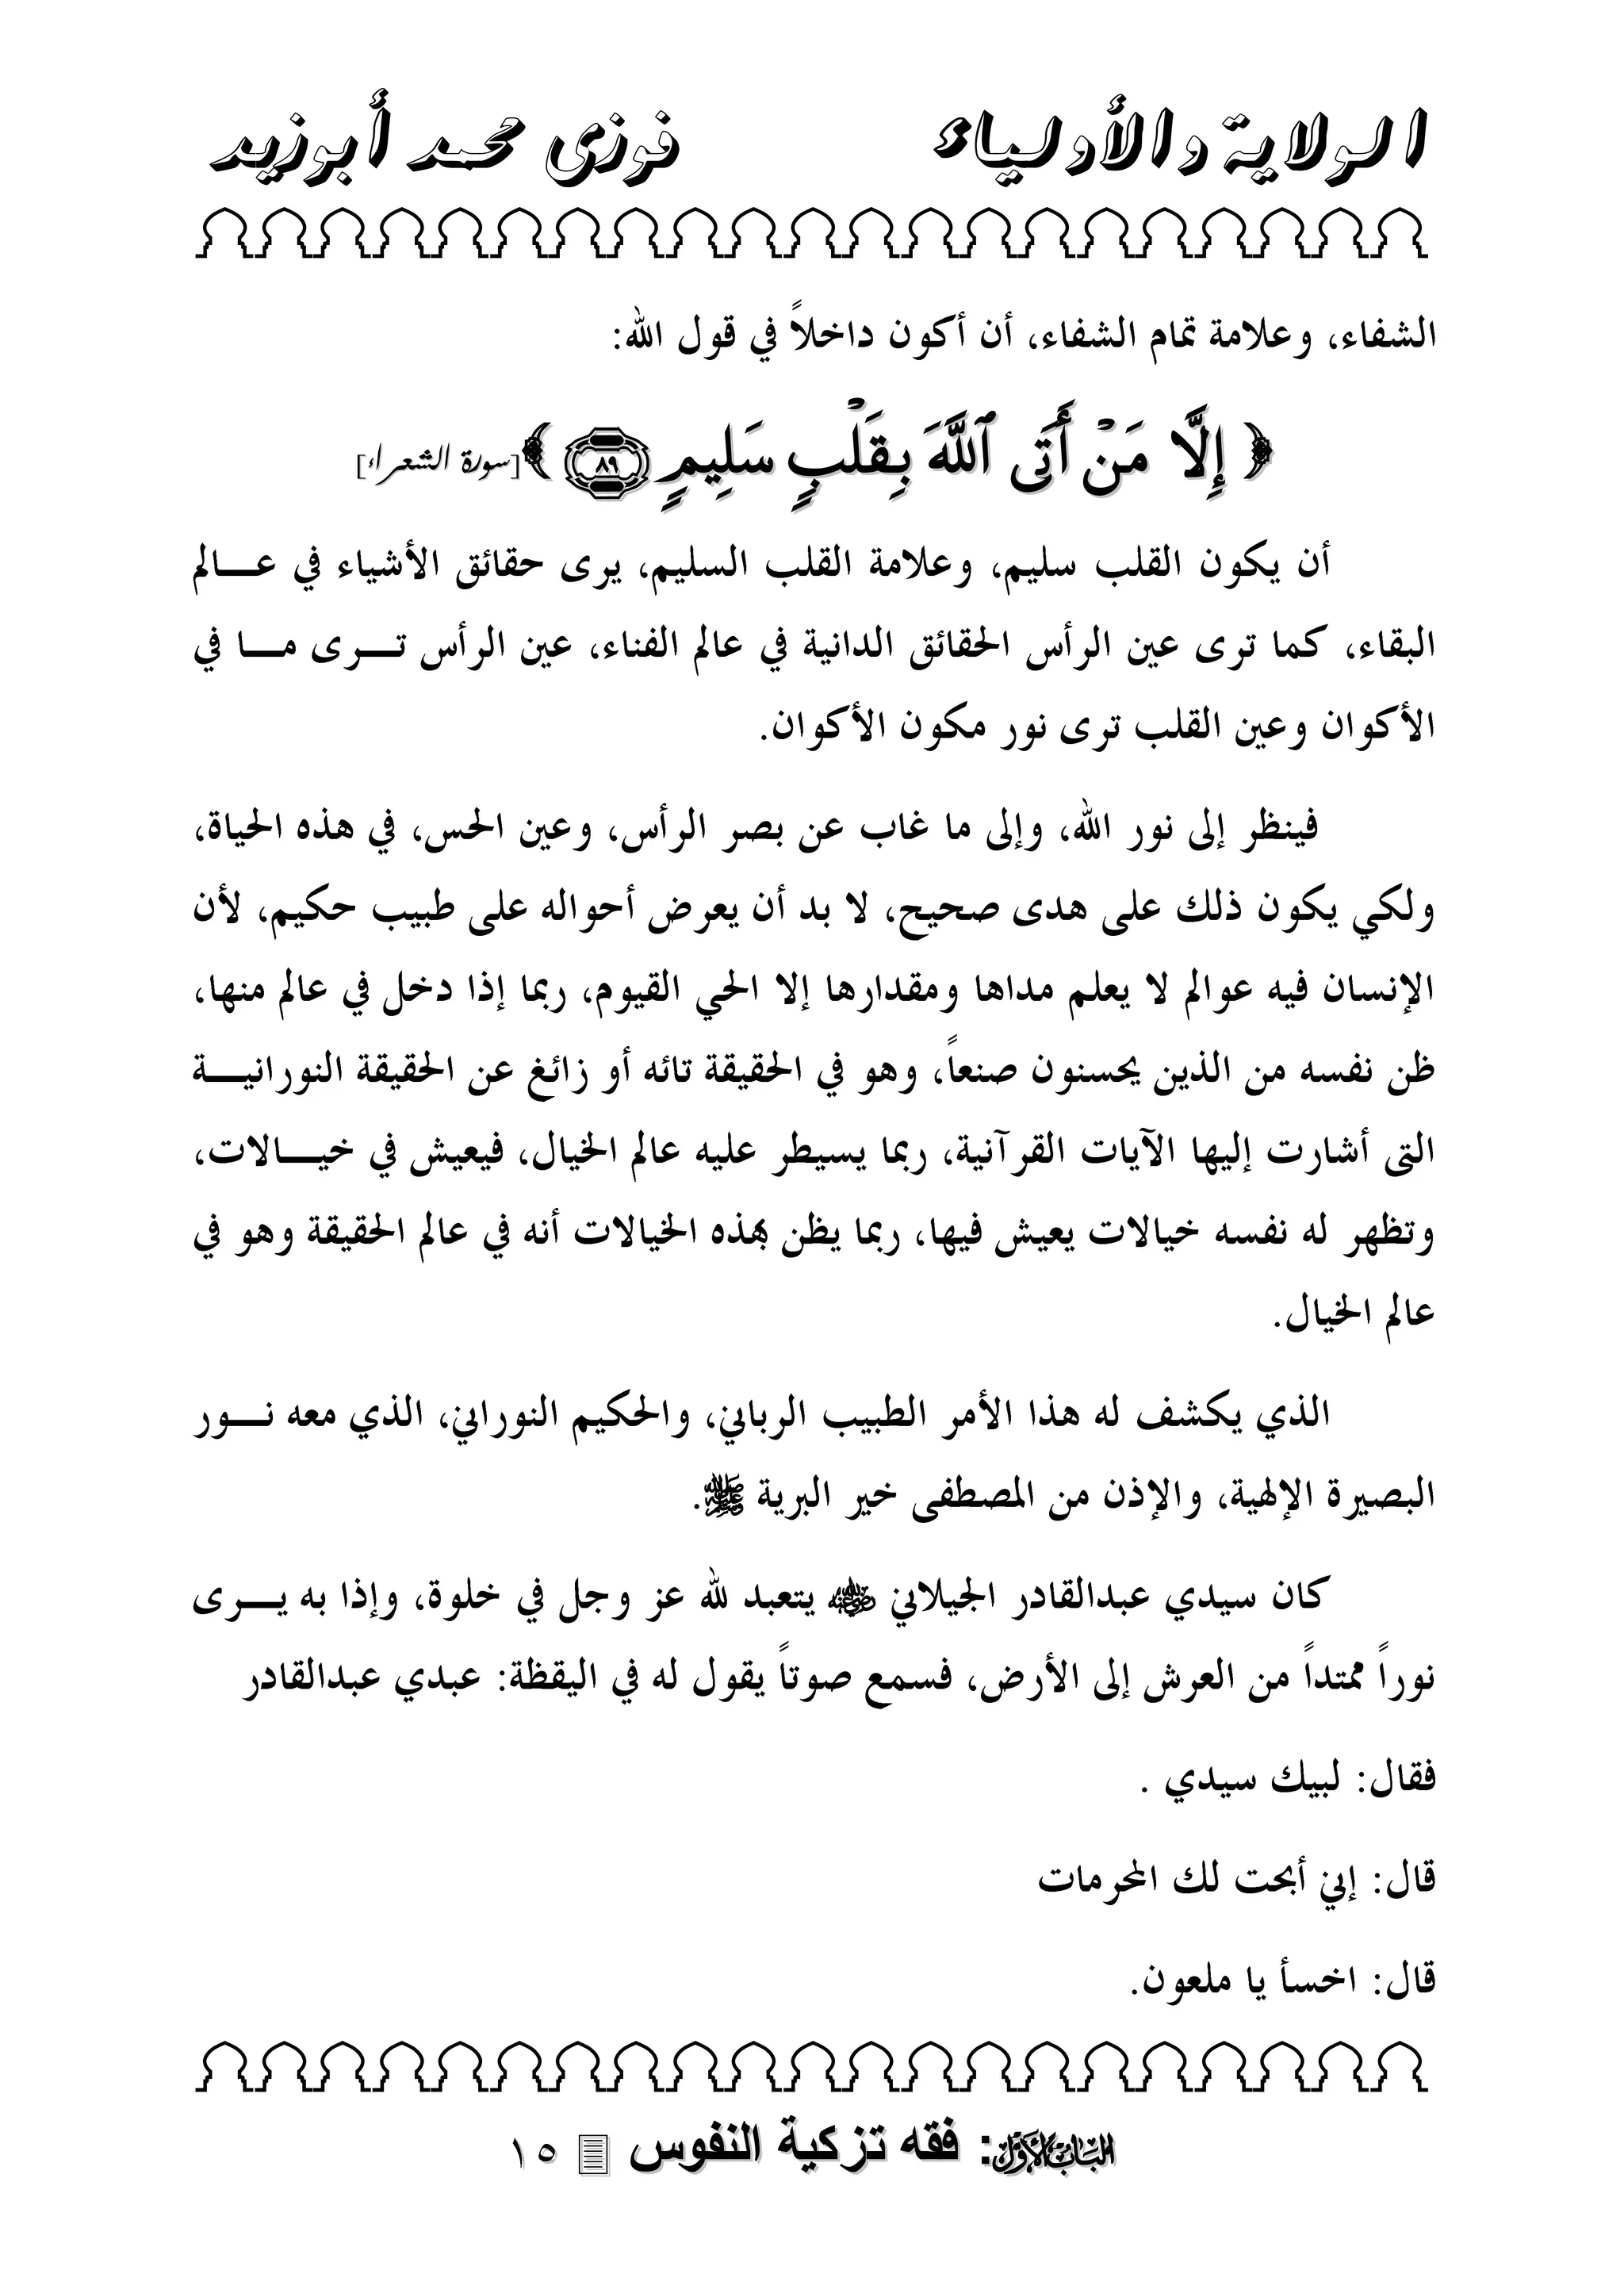 الولاية والأولياء فوزى محمد أبوزيد
الشفاء، وعلامة تمام الشفاء، أن أكون داخلاً في قول الله:
﴿ إِلَّا مَنْ أَتَى ٱللَّهَ بِقَلْبٍ سَلِيمٍ ٨٩ ﴾ [سورة الشعراء]
أن يكون القلب سليم، وعلامة القلب السليم، يرى حقائق الأشياء في عالم
البقاء، كما ترى عين الرأس الحقائق الدانية في عالم الفناء، عين الرأس ترى ما في
الأكوان وعين القلب ترى نور مكون الأكوان.
فينظر إلى نور الله، وإلى ما غاب عن بصر الرأس، وعين الحس، في هذه الحياة،
ولكي يكون ذلك على هدى صحيح، لا بد أن يعرض أحواله على طبيب حكيم، لأن
الإنسان فيه عوالم لا يعلم مداها ومقدارها إلا الحي القيوم، ربما إذا دخل في عالم منها،
ظن نفسه من الذين يحسنون صنعاً، وهو في الحقيقة تائه أو زائغ عن الحقيقة النورانية
التى أشارت إليها الآيات القرآنية، ربما يسيطر عليه عالم الخيال، فيعيش في خيالات،
وتظهر له نفسه خيالات يعيش فيها، ربما يظن بهذه الخيالات أنه في عالم الحقيقة وهو في
عالم الخيال.
الذي يكشف له هذا الأمر الطبيب الرباني، والحكيم النوراني، الذي معه نور
البصيرة الإلهية، والإذن من المصطفى خير البرية ﷺ.
كان سيدي عبدالقادر الجيلاني رضي الله عنه يتعبد لله عز وجل في خلوة، وإذا به يرى
نوراً ممتداً من العرش إلى الأرض، فسمع صوتاً يقول له في اليقظة: عبدي عبدالقادر
فقال: لبيك سيدي .
قال: إني أبحت لك المحرمات
قال: اخسأ يا ملعون.
الباب الأول: فقه تزكية النفوس ١٥